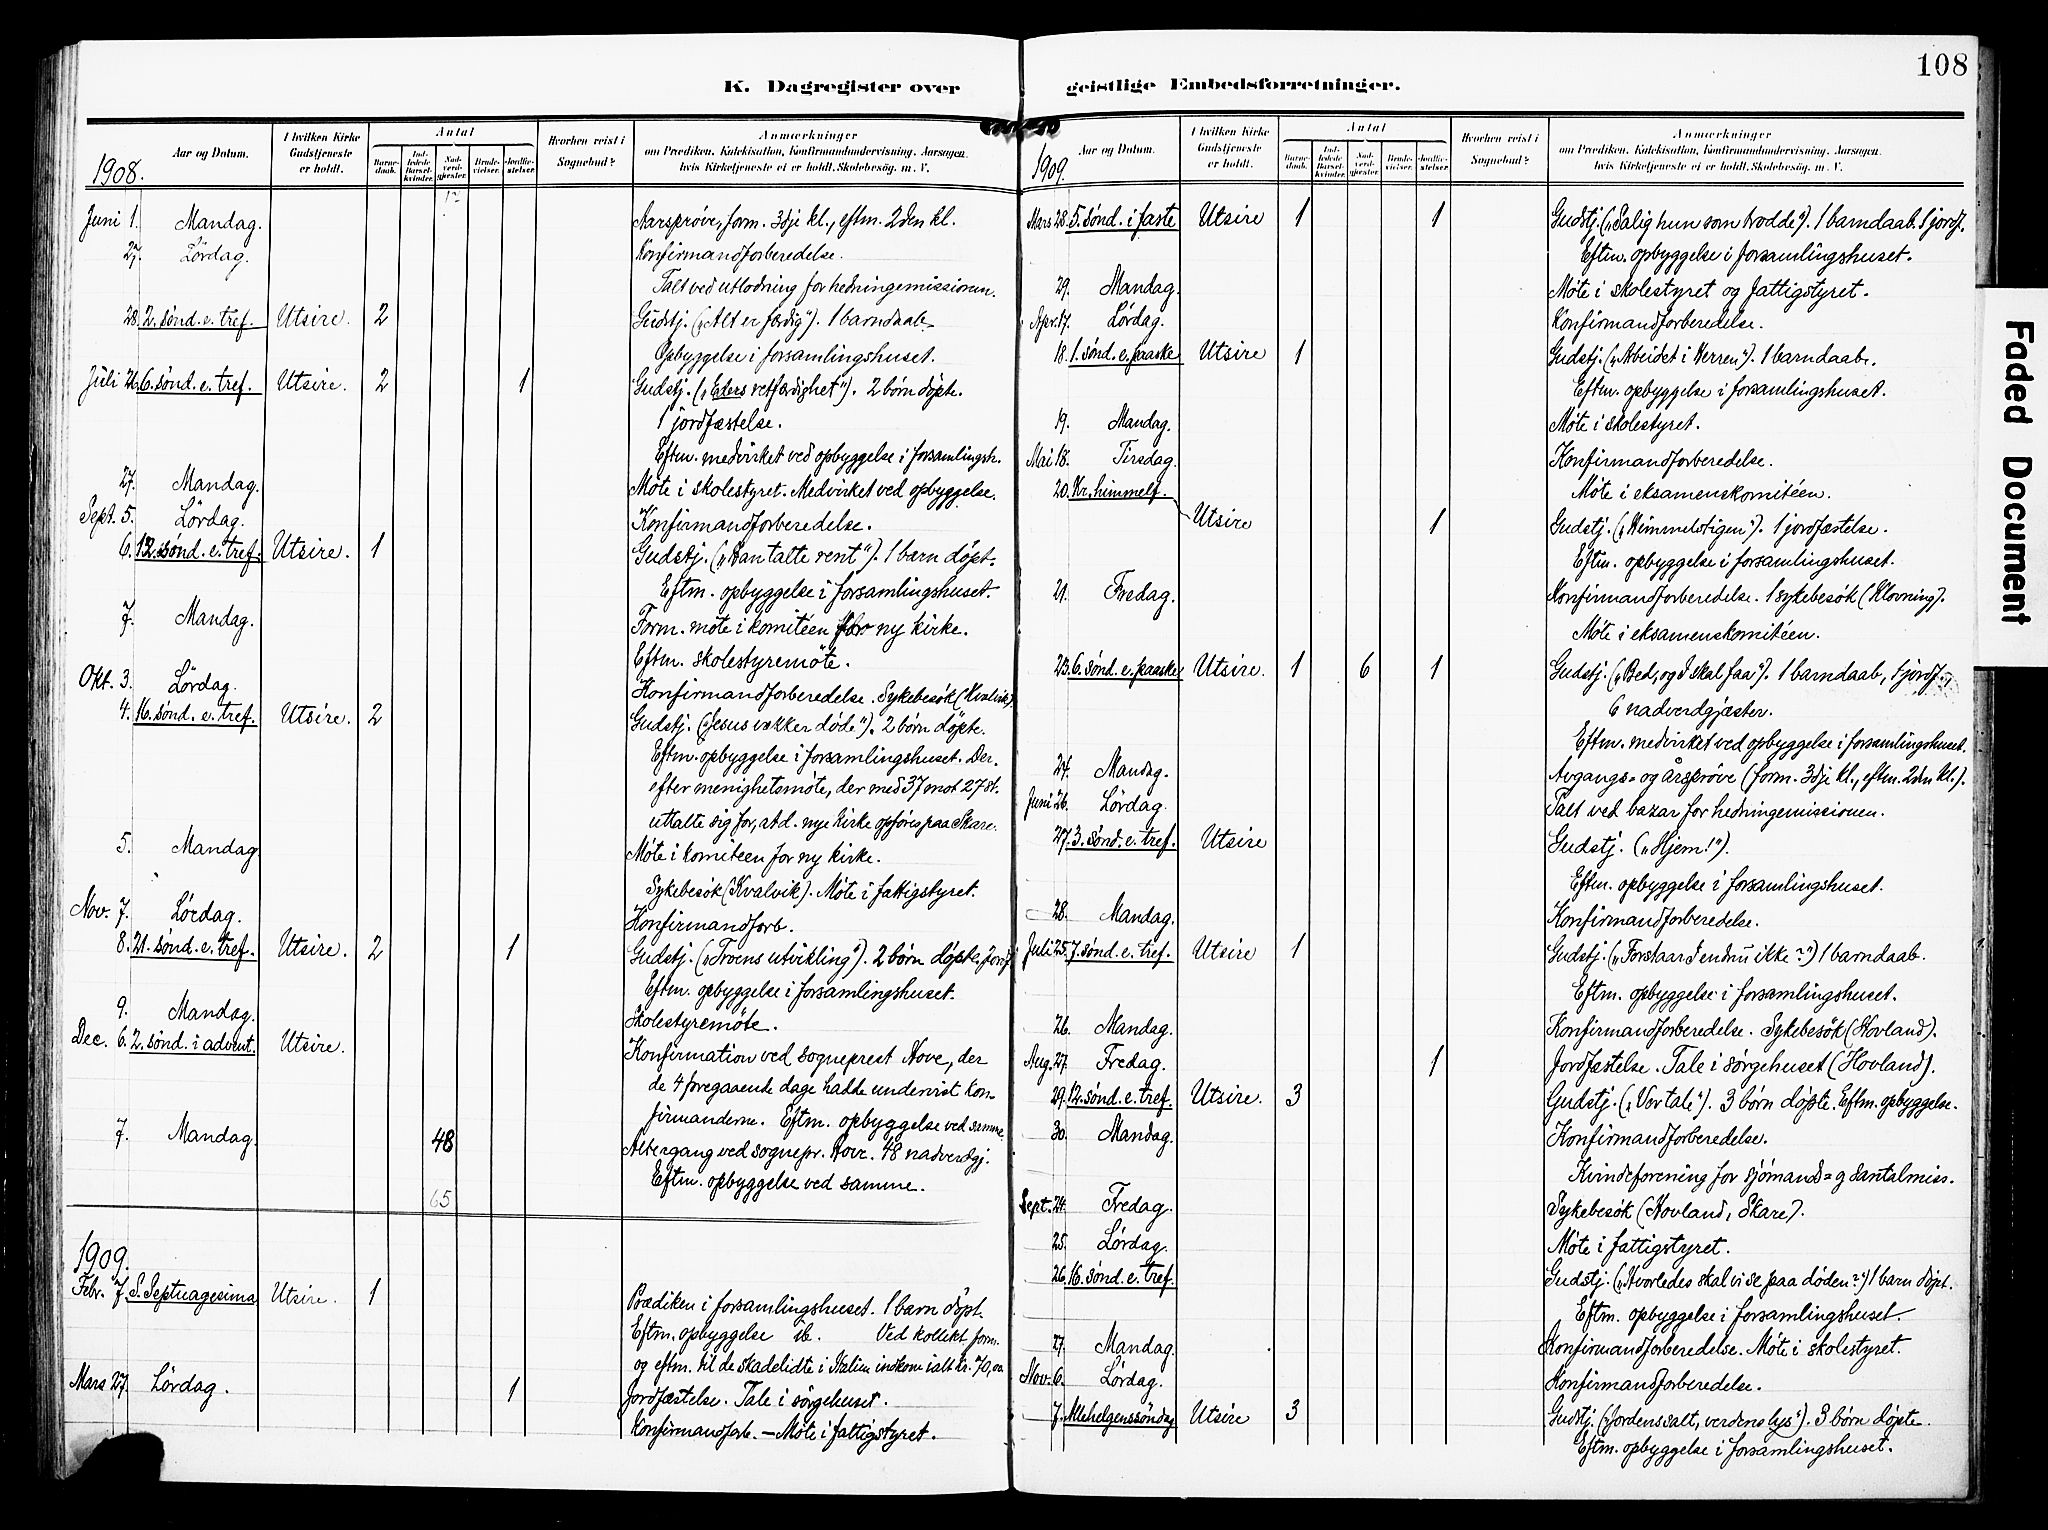 108
K. Dagregister over geistlige Embedsforretninger.
Aar og Datum.
I hvilken Kirke Gudstjeneste er holdt.
Antal
Barnedaab.
Indledede Barselkvinder.
Nadverdgjester.
Brudevielser.
Jordfæstelser.
Hvorhen reist i Sognebud?
Anmærkninger
om Prædiken, Katekisation, Konfirmandundervisning, Aarsagen,
hvis Kirketjeneste ei er holdt, Skolebesøg, m. V.
1908.
17
Juni 1. Mandag. Aarsprøve, form. 3dje kl., eftm. 2den kl.
27. Lördag. Konfirmandforberedelse.
Talt ved utlodning for hedningemissionen.
28. 2. sönd. e. tref. Utsire. 2 Gudstj. („Alt er færdig"). 1 barndaab.
Opbyggelse i forsamlingshuset.
Juli 26. 6. sønd. e. tref. Utsire. 2 1 Gudstj. („Eders retfærdighet"). 2 børn döpte.
1 jordfæstelse.
Eftm. medvirket ved opbyggelse i forsamlingsh.
27. Mandag. Möte i skolestyret. Medvirket ved opbyggelse.
Sept. 5. Lördag. Konfirmandforberedelse.
6. 12. sönd. e. tref. Utsire. 1 Gudstj. („Han talte rent"). 1 barn döpt.
Eftm. opbyggelse i forsamlingshuset.
7. Mandag. Form. möte i komitéen for ny kirke.
Eftm. skolestyremöte.
Okt. 3. Lördag. Konfirmandforberedelse. Sykebesök (Kvalvik).
4. 16. sönd. e. tref. Utsire. 2 Gudstj. („Jesus vækker døde"). 2 børn döpte.
Eftm. opbyggelse i forsamlingshuset. Der-
efter menighetsmöte, der med 37 mot 27 st.
uttalte sig for, at d. nye kirke opføres paa Skare.
5. Mandag. Möte i komiteen for ny kirke.
Sykebesök (Kvalvik). Möte i fattigstyret.
Nov. 7. Lördag. Konfirmandforb.
8. 21. sönd. e. tref. Utsire. 2 1 Gudstj. („Troens utvikling"). 2 børn döpte. Jordf.
Eftm. opbyggelse i forsamlingshuset.
9. Mandag. Skolestyremöte.
Dec. 6. 2. sønd. i advent. Utsire. Konfirmation ved sogneprest Hove, der
de 4 foregaaende dage hadde undervist kon-
firmanderne. Eftm. opbyggelse ved samme.
7. Mandag. 48 Altergang ved sognepr. Hove. 48 nadverdgj.
Eftm. opbyggelse ved samme.
65
1909.
Febr. 7. S. Septuagesima Utsire. 1 Prædiken i forsamlingshuset. 1 barn döpt.
Eftm. opbyggelse ib. Ved kollekt form.
og eftm. til de skadelidte i Italien indkom ialt kr. 70,00
Mars 27. Lördag. 1 Jordfæstelse. Tale i sörgehuset.
Konfirmandforb. — Möte i fattigstyret.
Aar og Datum.
I hvilken Kirke Gudstjeneste er holdt.
Antal
Barnedaab.
Indledede Barselkvinder.
Nadverdgjester.
Brudevielser.
Jordfæstelser.
Hvorhen reist i Sognebud?
Anmærkninger
om Prædiken, Katekisation, Konfirmandundervisning, Aarsagen,
hvis Kirketjeneste ei er holdt, Skolebesøg, m. V.
1909.
Mars 28. 5. sønd. i faste Utsire 1 1 Gudstj. („Salig hun som trodde"). 1 barndaab. 1 jordf.
Eftm. opbyggelse i forsamlingshuset.
29. Mandag. Möte i skolestyret og fattigstyret.
Apr. 17. Lördag. Konfirmandforberedelse.
18. 1. sønd. e. paaske Utsire 1 Gudstj. („Arbeidet i Herren"). 1 barndaab.
Eftm. opbyggelse i forsamlingshuset.
19. Mandag. Möte i skolestyret.
Mai 18. Tirsdag. Konfirmandforberedelse.
20. Kr. himmelf. Möte i eksamenskomitéen.
Utsire 1 Gudstj. („Himmelstigen"). 1 jordfæstelse.
Eftm. opbyggelse i forsamlingshuset.
21. Fredag. Konfirmandforberedelse. 1 sykebesök (Klovning).
Möte i eksamenskomitéen.
23. 6. sønd. e. paaske Utsire. 1 6 1 Gudstj. („Bed, og I skal faa"). 1 barndaab, 1 jordf.
6 nadverdgjæster.
Eftm. medvirket ved opbyggelse i forsamlingshuset.
24. Mandag. Avgangs- og årsprøve (form. 3dje kl., eftm. 2den kl.).
Juni 26. Lördag. Talt ved bazar for hedningemissionen.
27. 3. sønd. e. tref. Utsire Gudstj. („Hjem!").
Eftm. opbyggelse i forsamlingshuset.
28. Mandag. Konfirmandforberedelse.
Juli 25. 7. sønd. e. tref. Utsire 1 Gudstj. („Forstaar I endnu ikke?") 1 barndaab.
Eftm. opbyggelse i forsamlingshuset.
26. Mandag. Konfirmandforberedelse. Sykebesök (Hovland).
Aug. 27. Fredag. 1 Jordfæstelse. Tale i sörgehuset (Hovland).
29. 12. sönd. e. tref. Utsire. 3 Gudstj. („Vor tale"). 3 börn döpte. Eftm. opbyggelse.
30. Mandag. Konfirmandforberedelse.
Kvindeforening for sjömands- og santalmiss.
Sept. 24. Fredag. Sykebesök (Hovland, Skare).
25. Lördag. Möte i fattigstyret.
26. 16. sønd. e. tref. Gudstj. („Hvorledes skal vi se paa døden?") 1 barn döpt.
Eftm. opbyggelse i forsamlingshuset.
27. Mandag. Konfirmandforberedelse. Möte i skolestyret.
Nov. 6. Lördag. Konfirmandforberedelse.
7. Allehelgenssöndag Utsire 3 Gudstj. („Jordens salt, verdens lys"). 3 børn döpte.
Eftm. opbyggelse i forsamlingshuset.
Faded Document